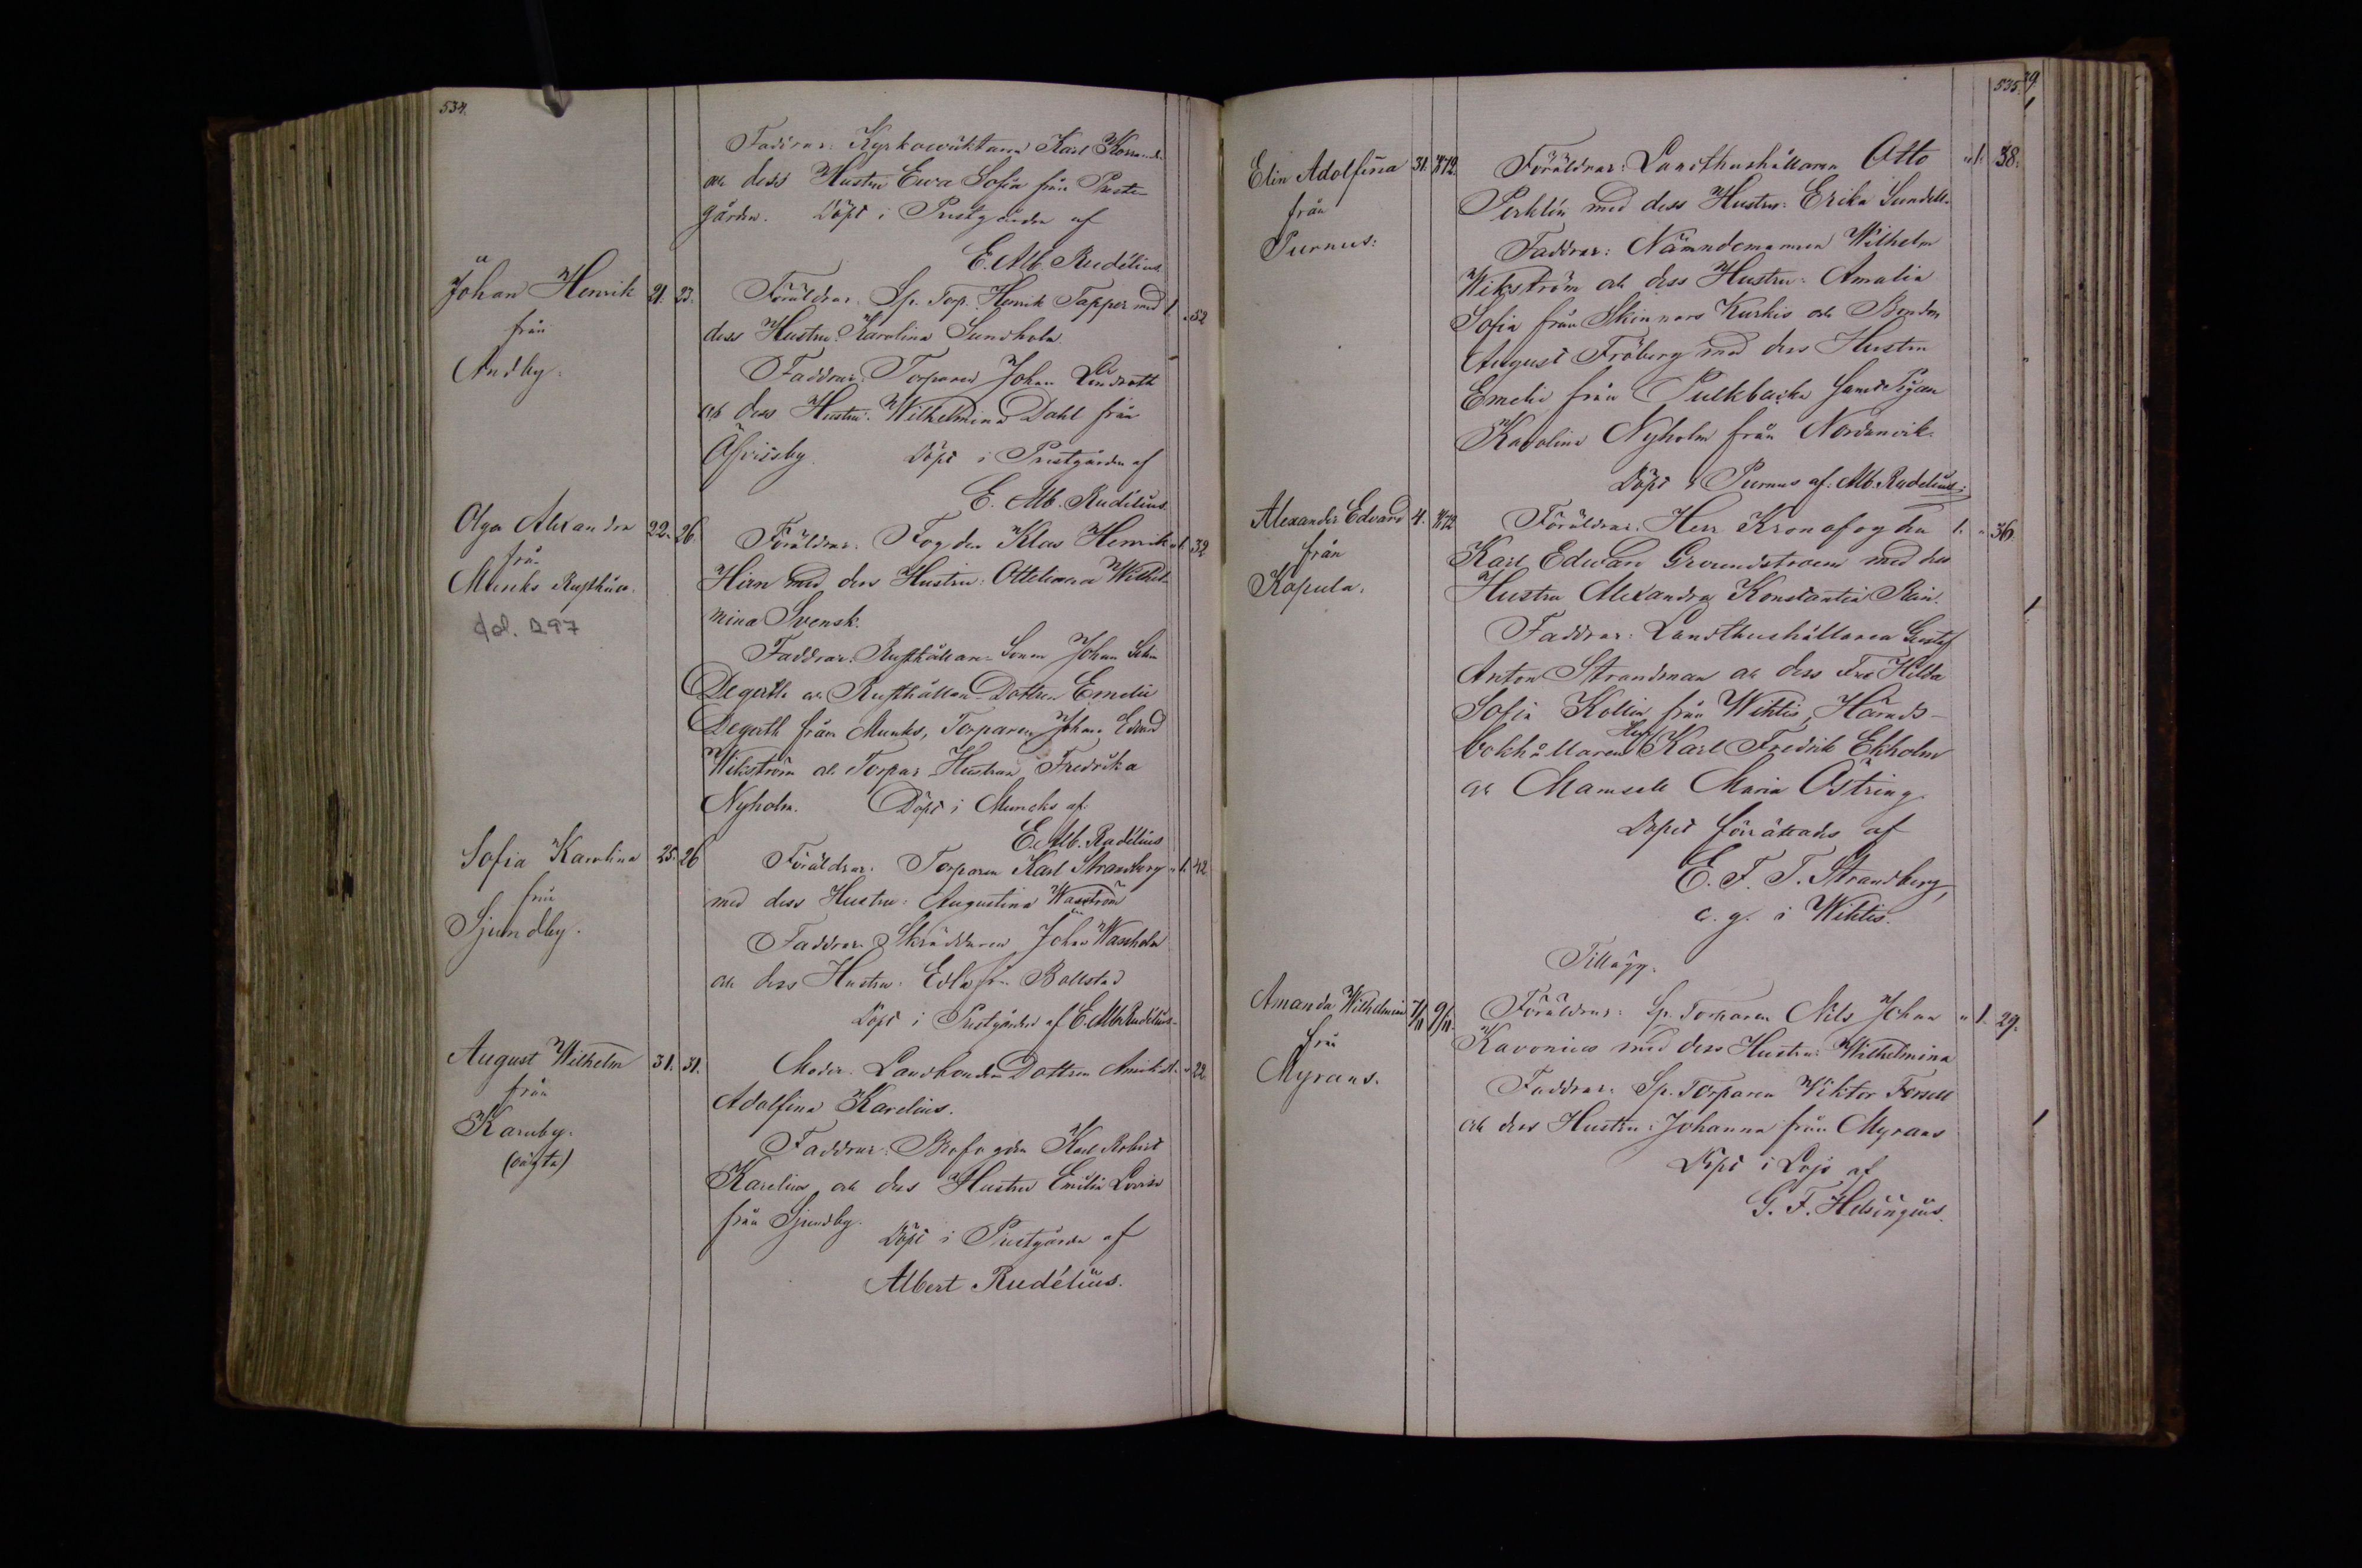 534.
Faddrar: Kyrkoväktaren Karl
och dess Hustru Ewa Sofia från Preste-
gården. Döpt i Prestgården af
E. Alb. Rudélius.
Johan Henrik 21. 23. Föräldrar: Sp. Torp. Henrik Tapper med 1. 52
från dess Hustru Karolina Sundholm.
Andby. Faddrar: Torparen Johan Lindroth
och dess Hustru: Wilhelmina Dahl från
Döpt i Prestgården af
E. Alb. Rudélius.
Olga Alexandra 22. 26. Föräldrar: Fogden Klas Henrik 1. 32
från Hien med dess Hustru: Ottiliana Wilhel-
Munks Rusthåll. mina Svensk.
fol. 297
Faddrar: Rusthållare-Sonen Johan
Degerth och Rusthållare-Dottren Emelie
Degerth från Munks, Torparen Johan Edvard
Wikström och Torpar-Hustrun Fredrika
Nyholm. Döpt i Muncks af:
E. Alb. Rudélius
Sofia Karolina 25. 26 Föräldrar: Torparen Karl Strandberg 1. 42
från med dess Hustru: Augustina Waström
Sjundby. Faddrar: Skräddaren Johan Wassholm
och dess Hustru: Edla från Bollstad
Döpt i Prestgården af E. Alb. Rudélius.
August Wilhelm 31. 31. Moder: Landbonde Dottren 22.
från Adolfina Karelius.
Karuby. Faddrar: Karl Robert
(oägta) Karelius och dess Hustru Emilia Lovisa
från Sjundby. Döpt i Prestgården af
Albert Rudélius.
535.
39.
Elin Adolfina 31. Föräldrar: Landthushållaren Otto 1. 38.
från Perklén med dess Hustru: Erika Sundell.
Purnus: Faddrar: Nämndemannen Wilhelm
Wikström och dess Hustru: Amalia
Sofia från Skinnars Kurkis och Bonden
August Fröberg med dess Hustru
Emelie från Pulkbacka samt Pigan
Karolina Nyholm från Nordanvik.
Döpt i Purnus af: Alb. Rudelius:
Alexander Edvard 4. Föräldrar: Herr Kronofogden 1. 36.
från Karl Edward Grundstroem med dess
Kopula. Hustru Alexandra Konstantia
Faddrar: Landthushållaren Gustaf
Anton Strandman och dess Fru Hilda
Sofia Kollin från Wihtis, Härads-
bokhållaren Herr Karl Fredrik Ekholm
och Mamsell Maria Östring.
Dopet förrättades af
E. F. T. Strandberg,
c. g. i Wihtis.
Tillägg.
Amanda Wilhelmina 7/11 9/11. Föräldrar: Sp. Torparen Nils Johan 1. 29.
från Kavonius med dess Hustru: Wilhelmina
Myrans. Faddrar: Sp. Torparen Viktor Forsell
och dess Hustru: Johanna från Myrans
Döpt i Lojo af
G. F. Helsingius.